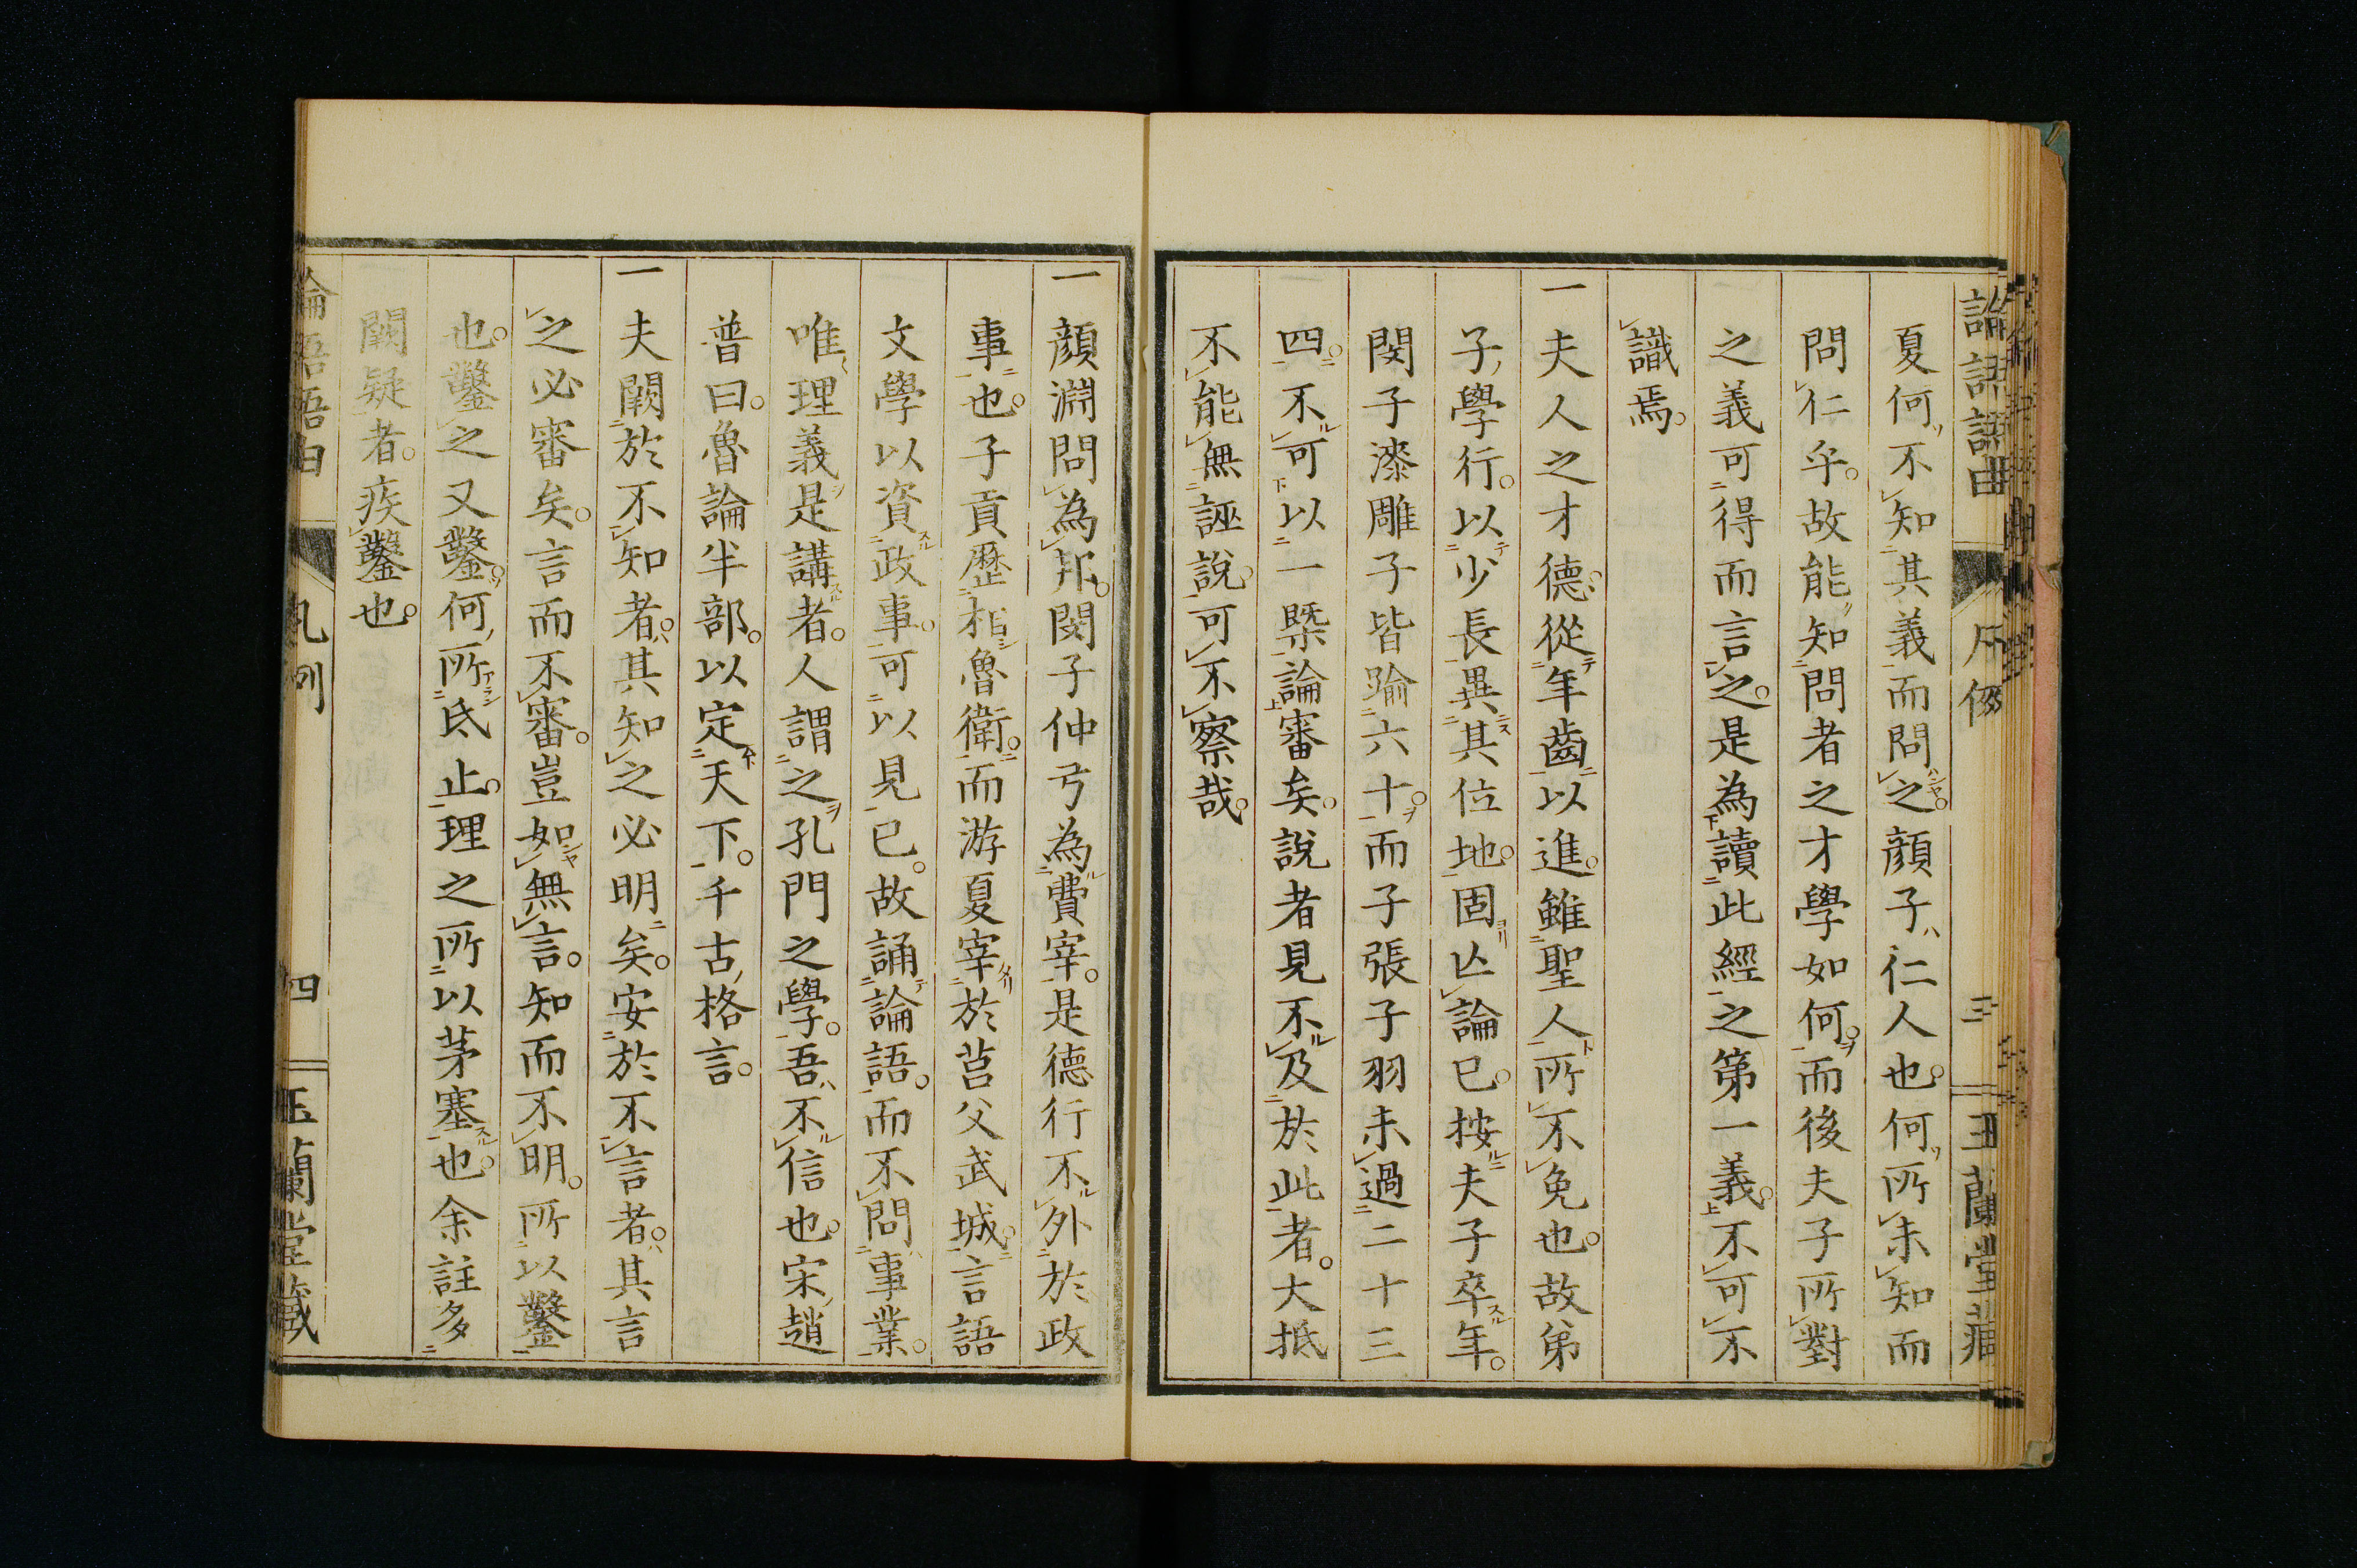 論語語由 凡例 三 玉蘭堂藏
夏何不知其義而問之。顏子仁人也。何所未知而
問仁乎。故能知問者之才學如何。而後夫子所對
之義可得而言之。是為讀此經之第一義。不可不
識焉。
一夫人之才德。從年齒以進。雖聖人所不免也。故弟
子學行。以少長異其位地。固亾論已。按夫子卒年。
閔子漆雕子皆踰六十。而子張子羽未過二十三
四。不可以一槩論審矣。說者見不及於此者。大抵
不能無誣說。可不察哉。
一顏淵問為邦。閔子仲弓為費宰。是德行不外於政
事也。子貢歷相魯衛。而游夏宰於莒父武城。言語
文學以資政事。可以見已。故誦論語。而不問事業。
唯理義是講者。人謂之孔門之學。吾不信也。宋趙
普曰。魯論半部。以定天下。千古格言。
一夫闕於不知者。其知之必明矣。安於不言者。其言
之必審矣。言而不審。豈如無言。知而不明。所以鑿
也。鑿之又鑿。何所底止。理之所以茅塞也。余註多
闕疑者。疾鑿也。
論語語由 凡例 四 玉蘭堂藏